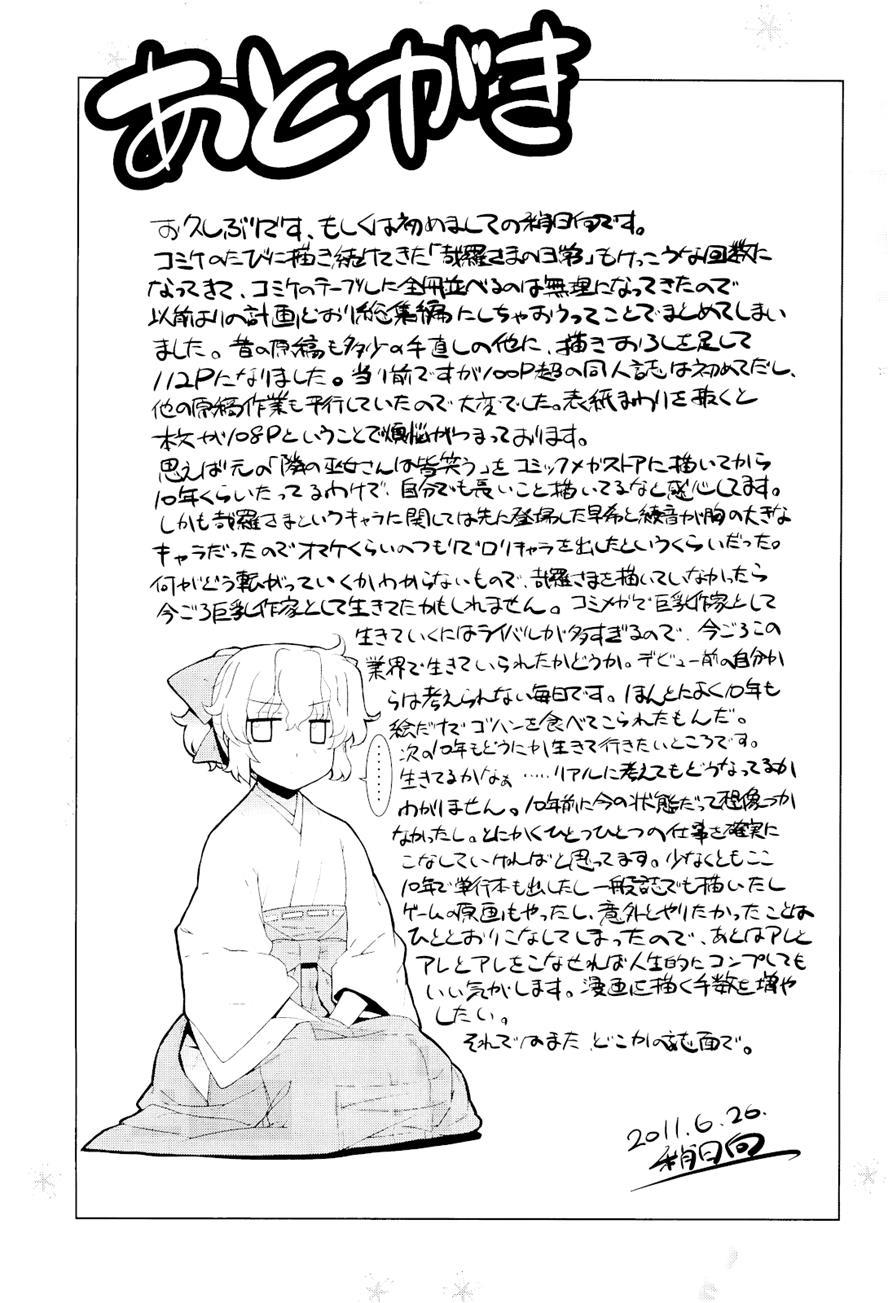 あとがき
お久しぶりです、もしくは初めましての稍日向です。
コミケのたびに描き続けてきた「哉羅さまの日常」もけっこうな回数に
なってきて、コミケのテーブルに全冊並べるのは無理になってきたので
以前よりの計画どおり総集編にしちゃおうってことでまとめてしまい
ました。昔の原稿も多少の手直しの他に、描きおろしを足して
112Pになりました。当り前ですが100P超の同人誌は初めてだし、
他の原稿作業も平行していたので大変でした。表紙まわりを抜くと
本文が108Pということで煩悩がつまっております。
思えば元の「隣の巫女さんは皆笑う」をコミックメガストアに描いてから
10年くらいたってるわけで、自分でも長いこと描いてるなと感心してます。
しかも哉羅さまというキャラに関しては先に登場した早希と綾音が胸の大きな
キャラだったのでオマケくらいのつもりでロリキャラを出したというくらいだった。
何がどう転がっていくかわからないもので、哉羅さまを描いていなかったら
今ごろ巨乳作家として生きてたかもしれません。コミメガで巨乳作家として
生きていくにはライバルが多すぎるので、今ごろこの
業界で生きていられたかどうか。デビュー前の自分か
らは考えられない毎日です。ほんとによく10年も
絵だけでゴハンを食べてこられたもんだ。
次の10年もどうにか生きて行きたいところです。
生きてるかなぁ……リアルに考えてもどうなってるか
わかりません。10年前に今の状態だって想像つか
なかったし。とにかくひとつひとつの仕事を確実に
こなしていければと思ってます。少なくともここ
10年で単行本も出したし一般誌でも描いたし
ゲームの原画もやったし、意外とやりたかったことは
ひととおりこなしてしまったので、あとはアレと
アレとアレをこなせれば人生的にコンプしても
いい気がします。漫画に描く手数を増や
したい。
それではまた どこかの誌面で。
………
2011.6.26.
稍日向